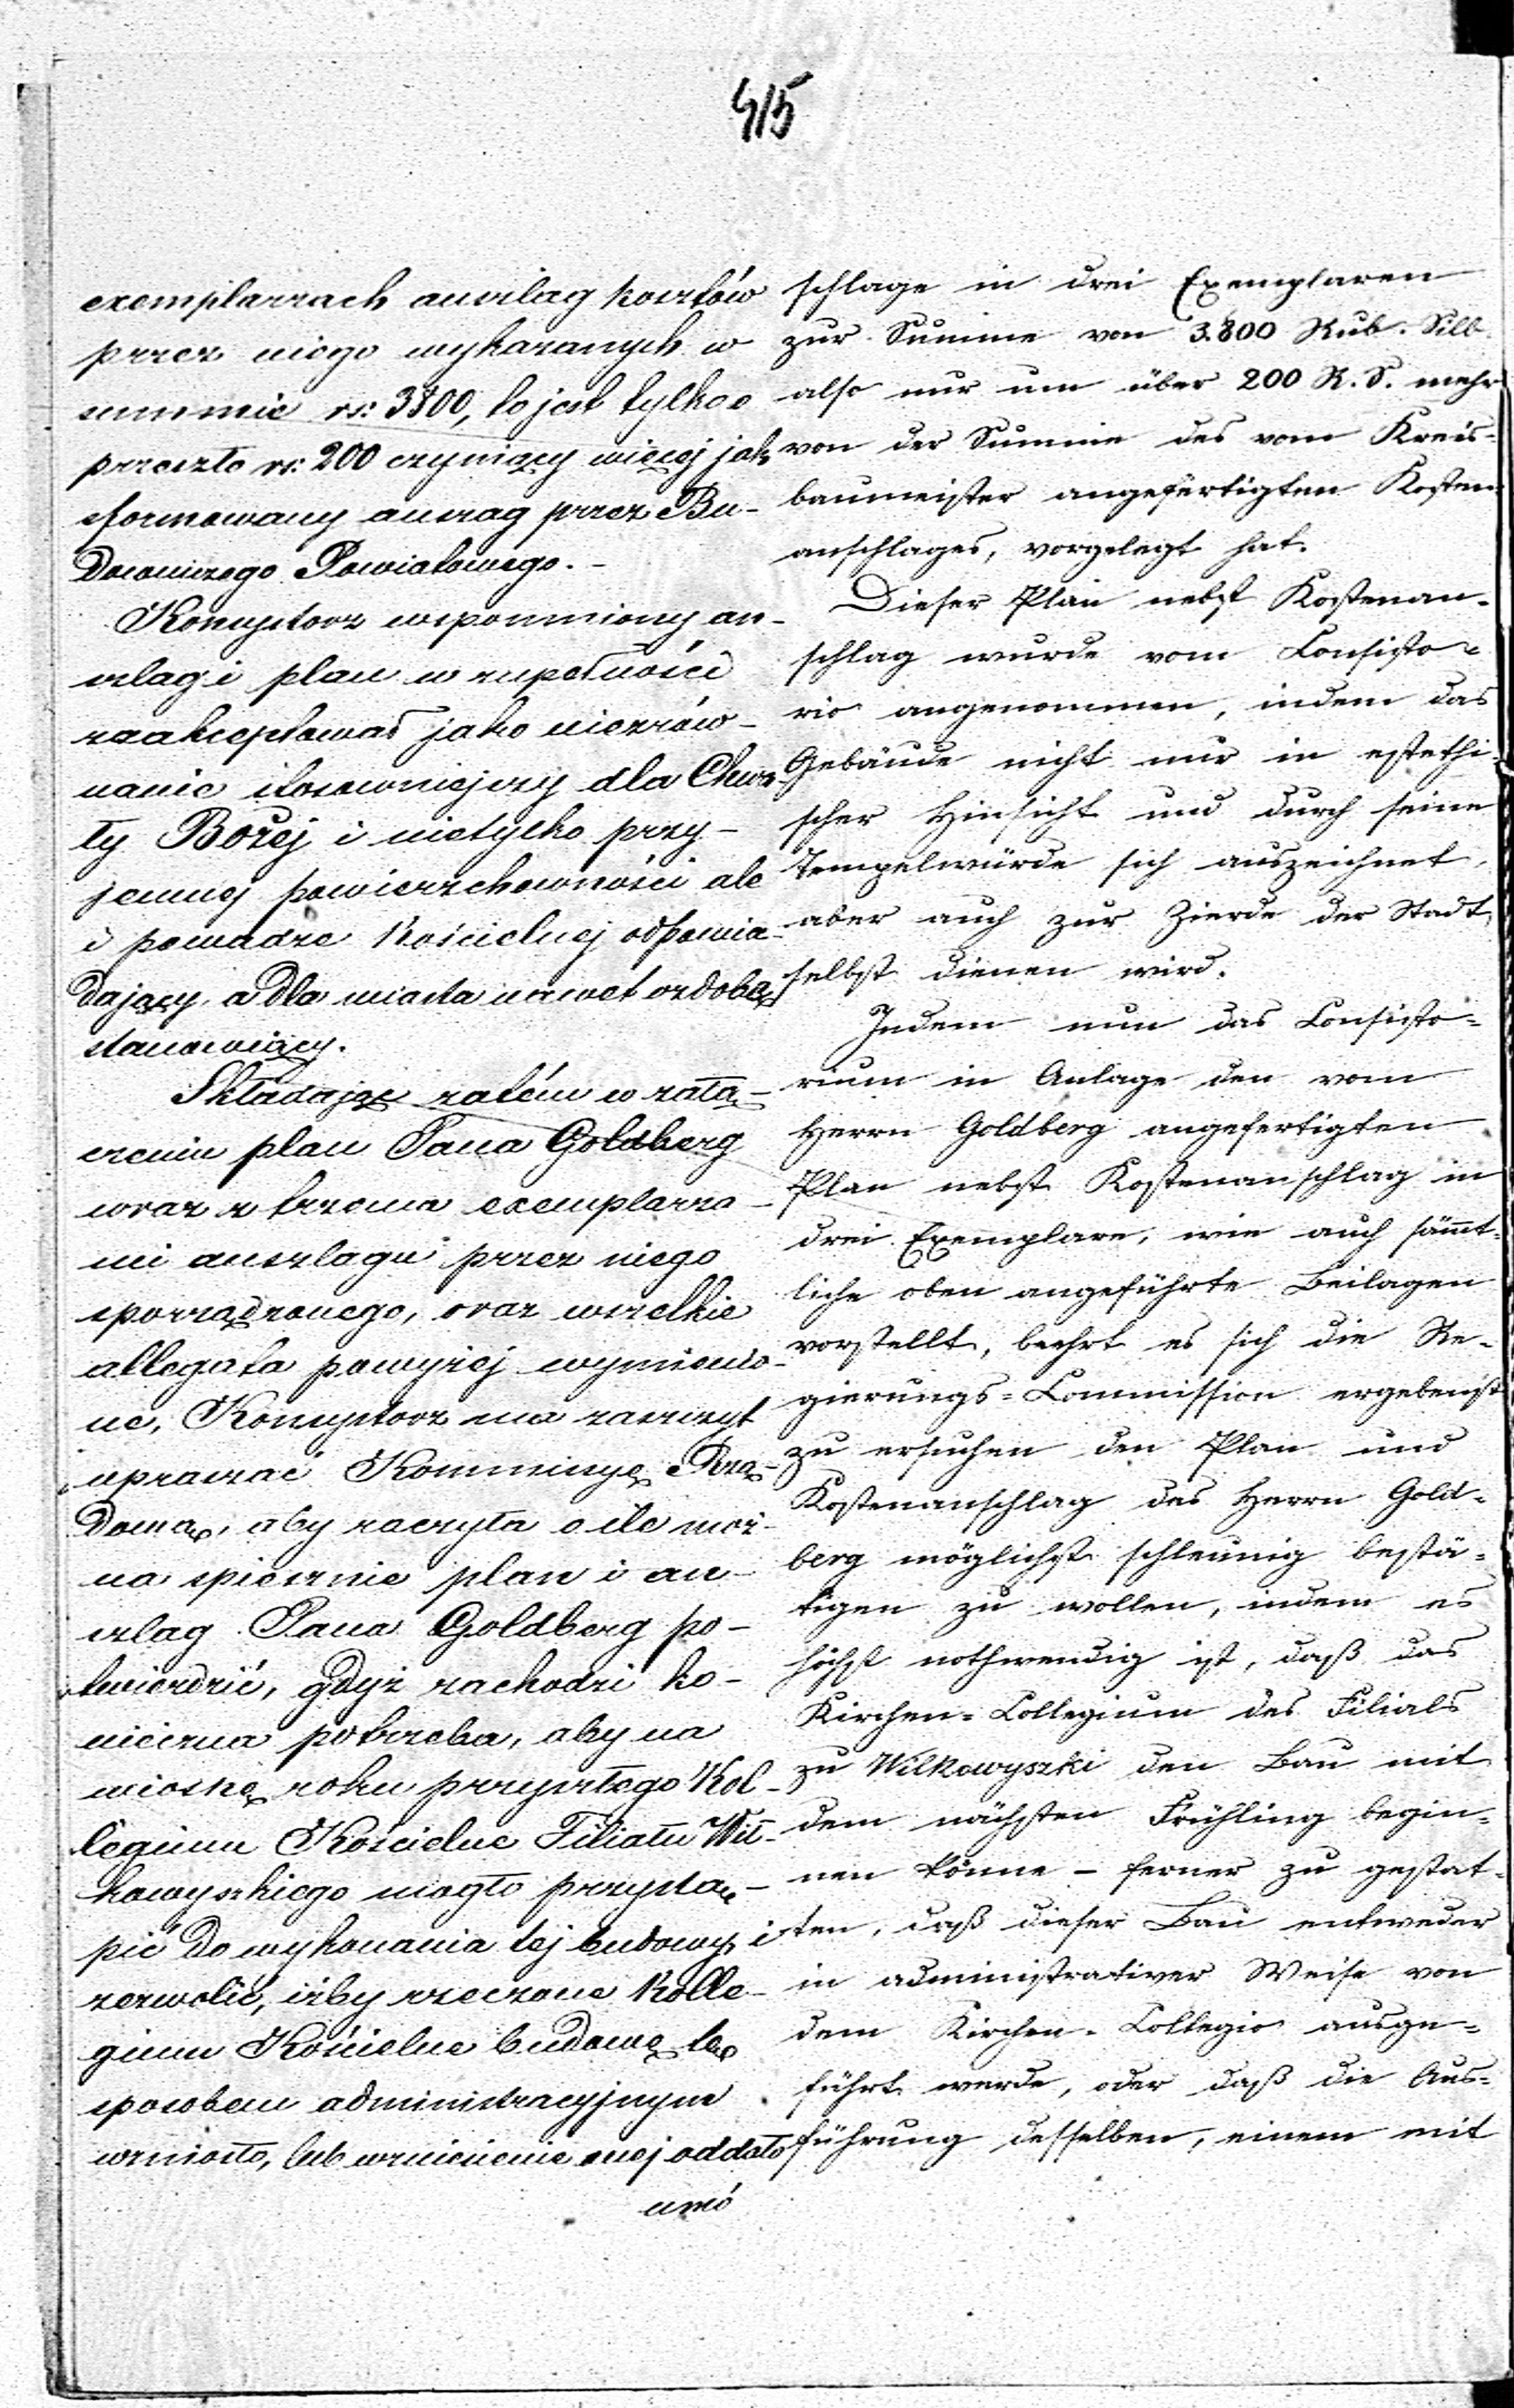 415
exemplarzach anszlag kosztów
przez niego wykazanych w
summie rs: 3800, to jest tylko o
przeszło rs: 200 czyniący więcej jak
sformowany anszlag przez Bu-
downiczego Powiatowego. -
Konsystorz wspomniony an-
szlag i plan w zupełności
zaakceptował jako nierów-
nanie stosowniejszy dla Chwa-
ły Bożej i nietylko przy-
jemnej powierzchowności ale
i powadze Kościelnej odpowia-
dający, a dla miasta nawet ozdobę
stanowiący.
Składając zatém w załą-
czeniu plan Pana Goldberg
wraz z trzema exemplarza-
mi anszlagu przez niego
sporządzonego, oraz wszelkie
allegata powyżej wymienio-
ne, Konsystorz ma zaszczyt
upraszać Kommissyę Rzą-
dową, aby raczyła o ile moż-
na spiesznie plan i an-
szlag Pana Goldberg po-
twierdzić, gdyż zachodzi ko-
nieczna potrzeba, aby na
wiosnę roku przyszłego Kol-
legium Kościelne Filiału Wił-
kowyszkiego mogło przystą-
pić do wykonania tej budowy, i
zezwolić, iżby rzeczone Kolle-
gium Kościelne budowę tę
sposobem administracyjnym
wzniosło, lub wzniesienie onej oddało
umó
schlage in drei Exemplaren
zur Summe von 3.800 Rub. Silb.
also nur um über 200 R. S. mehr
von der Summe des vom Kreis-
baumeister angefertigten Kosten-
anschlages, vorgelegt hat.
Dieser Plan nebst Kostenan-
schlag wurde vom Consisto-
rio angenommen, indem das
Gebäude nicht nur in estethi-
scher Hinsicht und durch seine
Tempelwürde sich auszeichnet,
aber auch zur Zierde der Stadt,
selbst dienen wird.
Indem nun das Consisto-
rium in Anlage den vom
Herrn Goldberg angefertigten
Plan nebst Kostenanschlag in
drei Exemplare, wie auch sämmt-
liche oben angeführte Beilagen
vorstellt, beehrt es sich die Re-
gierungs-Commission ergebenst
zu ersuchen den Plan und
Kostenanschlag des Herrn Gold-
berg möglichst schleunig bestä-
tigen zu wollen, indem es
höchst nothwendig ist, daß das
Kirchen-Collegium des Filials
zu Wilkowyszki den Bau mit
dem nächsten Frühling begin-
nen könne - ferner zu gestat-
ten, daß dieser Bau entweder
in administrativer Weise von
dem Kirchen-Collegio ausge-
führt werde, oder daß die Aus-
führung desselben, einem mit